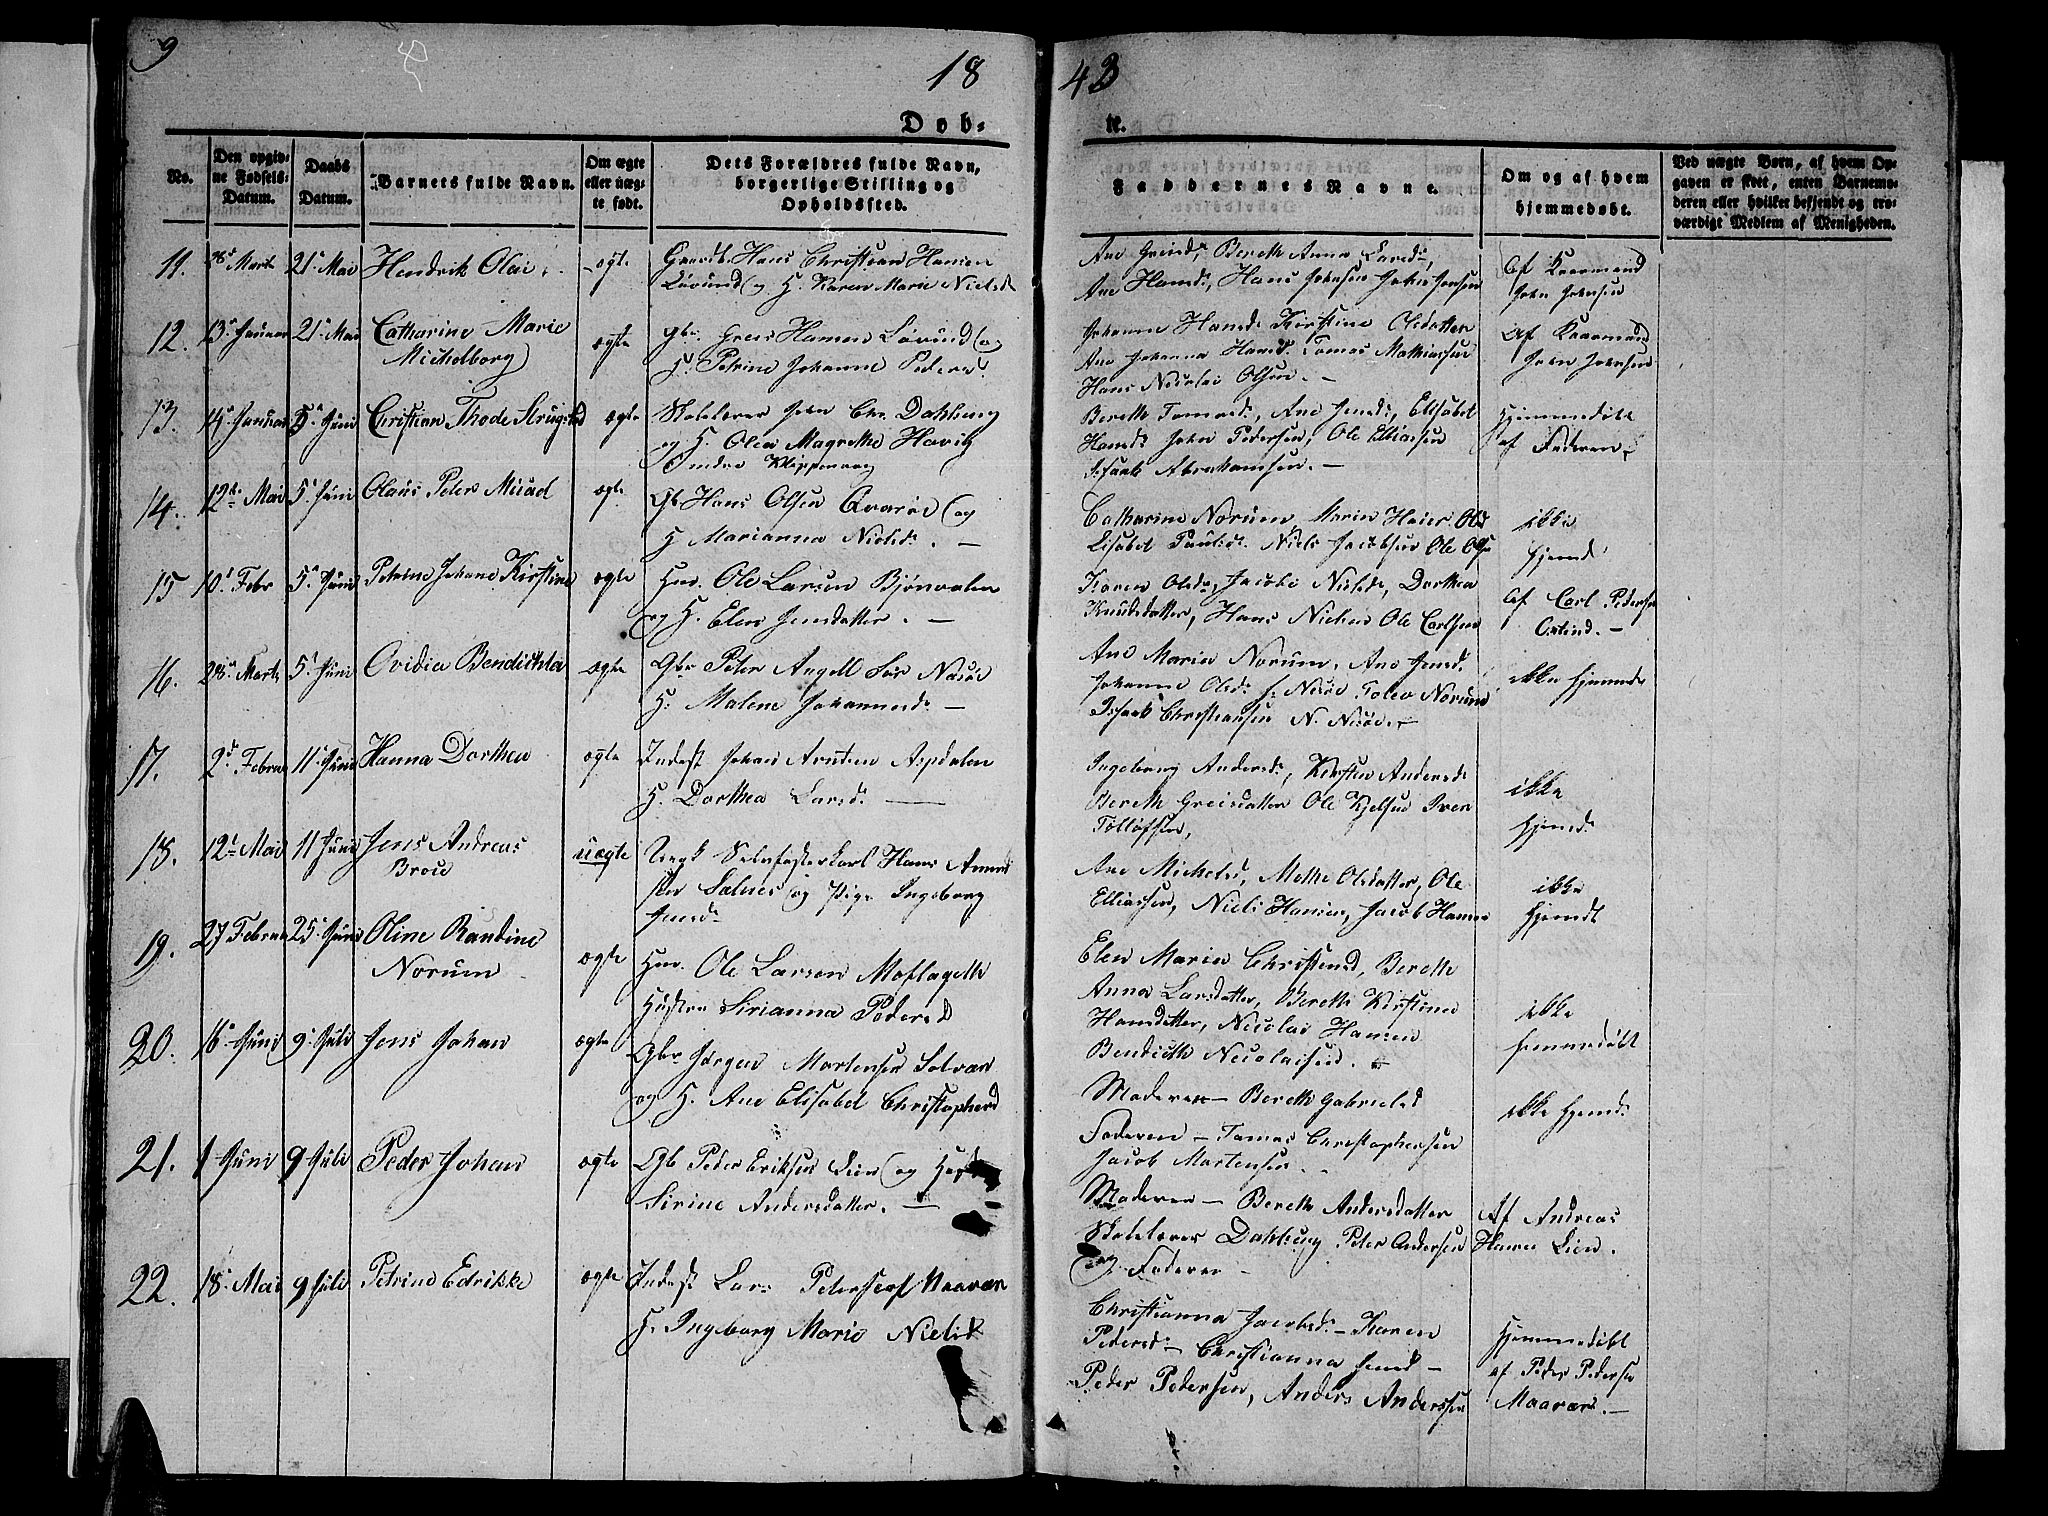 9
18
43
Døb-
te.
No.
Den opgiv-
ne Fødsels-
Datum.
Daabs
Datum.
Barnets fulde Navn.
Om ægte
eller uæg-
te født.
Dets Forældres fulde Navn,
borgerlige Stilling og
Opholdssted.
Faddernes Navne.
Om og af hvem
hjemmedøbt.
Ved uægte Børn, af hvem Op-
gaven er skeet, enten Barnemo-
deren eller hvilket bekjendt og tro-
værdigt Medlem af Menigheden.
11. 28 Marts 21 Mai Hendrik Olai ægte Hans Christian Hansen
Lovund og H. Karen Marie Nielsd
Ane Greisd, Bereth Anna Larsd,
Ane Hansd, Hans Johnsen John Jensen
Af
John Johnsen
12. 13 Januar 21 Mai Catharine Marie
Michelborg ægte Gbr. Greis Hansen Lovund og
H. Petrine Johanne Peders
Johanna Hansd Kirstine Olsdatter
Ane Johanna Hansd. Tomas Mathiassen
Hans Nicolai Olsen.
Af
John Johnsen
13. 14 Januar 5 Juni Christian Thode ægte Skolelærer John Chr. Dahlberg
og H. Olea Magrethe Havig
Indre
Bereth Tomasd, Ane Jensd, Elisabet
Hansd John Pedersen, Ole Elliassen
Isaak Abrahamsen.
Hjemmedøbt
af Faderen
14. 12 Mai 5 Juni Olaus Peter ægte Gb Hans Olsen Qvarøe og
H Marianna Nielsd.
Catharine Norum, Maren Olsd
Lisabet Paulsd. Niels Jacobsen Ole Ols
ikke
hjemd
15 10 Febr 5 Juni Petrine Johane Kirstine ægte Hmd. Ole Larsen
og H. Elen Jensdatter.
Karen Olsd, Jacobe Nielsd, Dorthea
Knudsdatter, Hans Nielsen Ole Carlsen
Af Carl Peders
16. 28 Marts 5 Juni Ovidia Bendichta ægte Gbr Peter Angell Sør Nesøe
H. Malene Johannesd.
Ane Maria Norum, Ane Jensd.
Johanne Olsd. Nesøe Norum
Isaak Christiansen N. Nesøe.
ikke hjemmd
17. 2 Februar 11 Juni Hanna Dorthea ægte Inderst Johan Arntsen Aspdalen
H. Dorthea Larsd.
Ingeborg Andersd, Kirsten Andersd
Bereth Greisdatter Ole Kjelsen Iver
Tollofsen,
ikke
hjemd
18. 12 Mai 11 Juni Jens Andreas
uægte Ungk Hans
Selnes og Pige Ingeborg
Jensd
Ane Michelsd, Methe Olsdatter, Ole
Elliassen, Niels Hansen, Jacob Hansen
ikke
hjemdt
19. 27 Februar 25 Juni Oline Randine
Norum ægte Hmd. Ole Larsen
Hustru Sirianna Pedersd
Elen Maria Christensd, Bereth
Anna Larsdatter, Bereth Kirstine
Hansdatter, Nicolai Hansen
Bendicth Nicolaisen.
ikke
20. 16 Juni 9 Juli Jens Johan ægte Gbr Jørgen Mortensen Solvær
og H. Ane Elisabet Christophersd
Moderen — Bereth Gabrielsd
Faderen — Tomas Christophersen
Jacob Mortensen.
ikke hjemd
21. 1 Juni 9 Juli Peder Johan ægte Gb Peder Eriksen Lien og
Sirine Andersdatter.
Moderen — Bereth Andersdatter
Skolelærer Dahlberg Peter Andersen
og Faderen
Af Andreas
Hansen Lien.
22. 18 Mai 9 Juli Petrine Edrikke ægte Inderst Lars Petersen
H. Ingeborg Marie Nielsd
Christianna Jacobsd — Karen
Pedersd — Christianna Jensd —
Peder Pedersen, Anders Anderssen
Hjemmedøbt
af Peder Pedersen
Maavær.